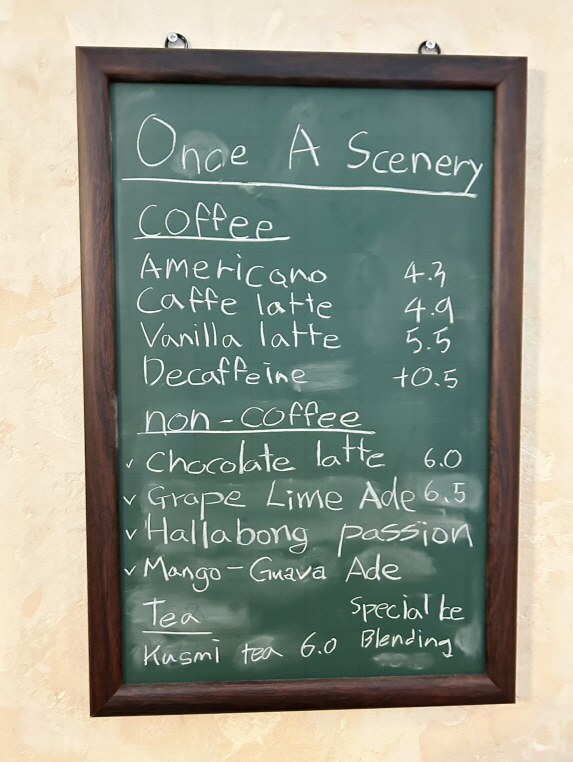 Once A Scenery
Coffee
Americano 4.3
Caffe latte 4.9
Vanilla latte 5.5
Decaffeine +0.5
non-coffee
✓ Chocolate latte 6.0
✓ Grape Lime Ade 6.5
✓ Hallabong passion
✓ Mango-Guava Ade
Tea
Kusmi tea 6.0
Special
Blending